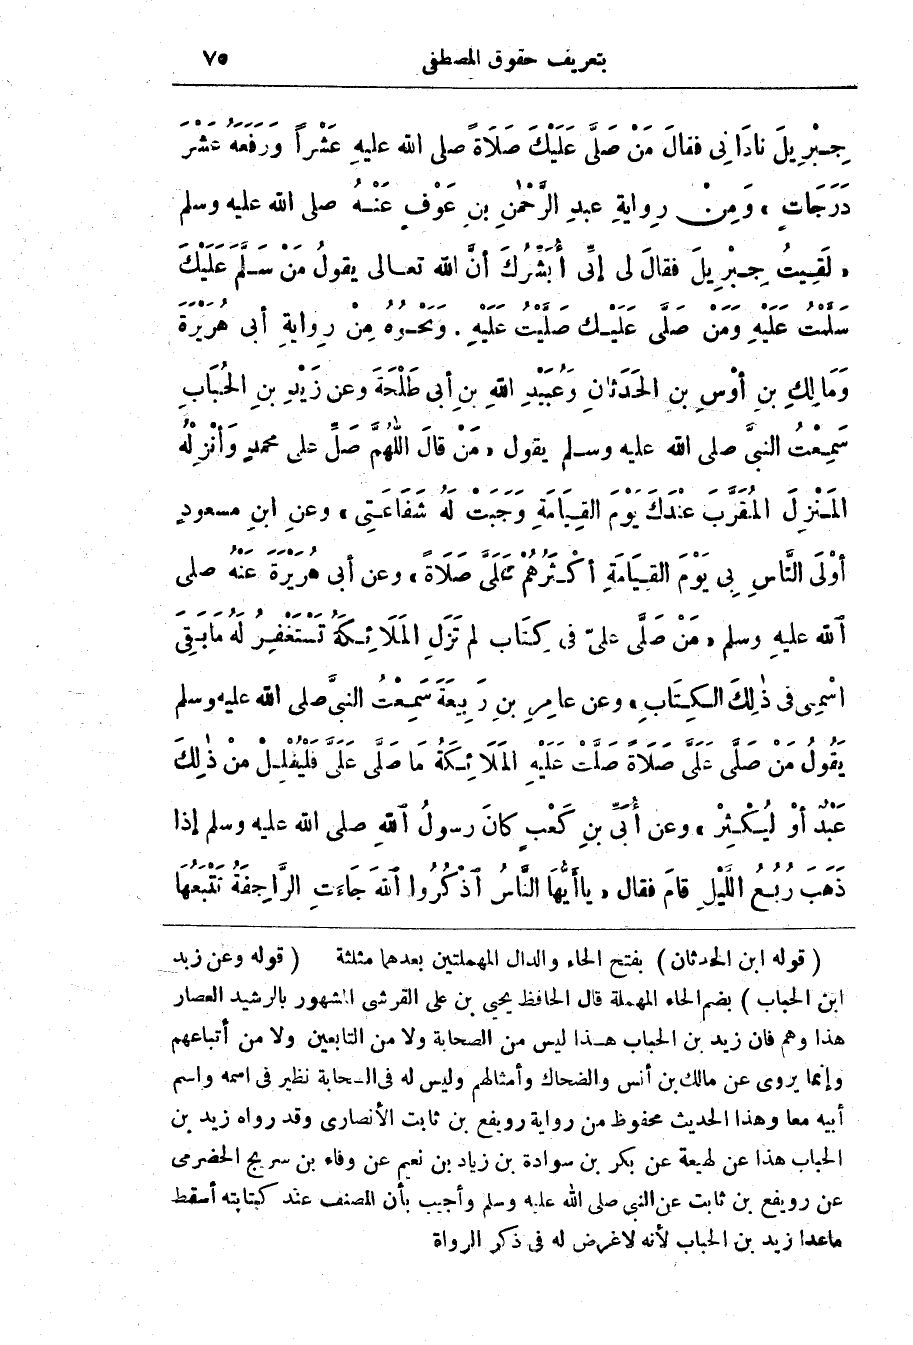 بتعريف حقوق المصطفى ٧٥
جِبْرِيلَ نادَانِى فقالَ مَنْ صَلَّى عَلَيْكَ صَلَاةً صلى الله عليهِ عَشْراً ورَفَعَهُ عَشْرَ
دَرَجَاتٍ ، وَمِنْ رِوايةِ عبدِ الرَّحْمٰنِ بنِ عَوْفٍ عَنْهُ صلى الله عليه وسلم
« لَقِيتُ جِبْرِيلَ فقالَ لى إنِّى أُبَشِّرُكَ أنَّ الله تعالى يقولُ مَنْ سَلَّمَ عَلَيْكَ
سَلَّمْتُ عَلَيْهِ وَمَنْ صَلَّى عَلَيْكَ صَلَّيْتُ عَلَيْهِ . وَنَحْوُهُ مِنْ رِوايةِ أبى هُرَيْرَةَ
وَمَالِكِ بنِ أوْسِ بنِ الحَدَثانِ وَعُبَيْدِ اللهِ بنِ أبى طَلْحَةَ وعن زَيْدِ بنِ الحُبَابِ
سَمِعْتُ النبىَّ صلى الله عليه وسلم يقول « مَنْ قالَ اللّٰهُمَّ صَلِّ على محمدٍ وَأنْزِلْهُ
المَنْزِلَ المُقَرَّبَ عِنْدَكَ يَوْمَ القِيَامَةِ وَجَبَتْ لَهُ شَفَاعَتِى ، وعنِ ابنِ مسعودٍ
أوْلَى النَّاسِ بِى يَوْمَ القِيَامَةِ أكْثَرُهُمْ عَلَىَّ صَلَاةً ، وعن أبى هُرَيْرَةَ عَنْهُ صلى
ٱلله عليهِ وسلم « مَنْ صَلَّى علىّ فى كِتَاب لم تَزَلِ المَلَائِكَةُ تَسْتَغْفِرُ لَهُ مابَقِىَ
اسْمِى فى ذٰلِكَ الكِتَابِ ، وعن عامرِ بنِ رَبِيعَةَ سَمِعْتُ النبىَّ صلى الله عليه وسلم
يَقُولُ مَنْ صَلَّى عَلَىَّ صَلَاةً صَلَّتْ عَلَيْهِ المَلَائِكَةُ مَا صَلَّى عَلَىَّ فَلْيُقْلِلْ مِنْ ذٰلِكَ
عَبْدٌ أوْ لِيُكْثِرْ ، وعن أُبَىِّ بنِ كَعْبٍ كانَ رسولُ ٱللهِ صلى الله عليه وسلم إذا
ذَهَبَ رُبُعُ اللَّيْلِ قامَ فقال « ياأَيُّهَا النَّاسُ ٱذْكُرُوا ٱللهَ جَاءَتِ الرَّاجِفَةُ تَتْبَعُهَا
( قوله ابن الحدثان ) بفتح الحاء والدال المهملتين بعدهما مثلثة ( قوله وعن زيد
ابن الحباب ) بضم الحاء المهملة قال الحافظ يحيى بن على القرشى المشهور بالرشيد العصار
هذا وهم فان زيد بن الحباب هذا ليس من الصحابة ولا من التابعين ولا من أتباعهم
وإنما يروى عن مالك بن أنس والضحاك وأمثالهم وليس له فى الصحابة نظير فى اسمه واسم
أبيه معا وهذا الحديث محفوظ من رواية رويفع بن ثابت الأنصارى وقد رواه زيد بن
الحباب هذا عن لهيعة عن بكر بن سوادة بن زياد بن نعيم عن وفاء بن سريج الحضرمى
عن رويفع بن ثابت عن النبي صلى الله عليه وسلم وأجيب بأن المصنف عند كتابته أسقط
ماعدا زيد بن الحباب لأنه لاغرض له فى ذكر الرواة